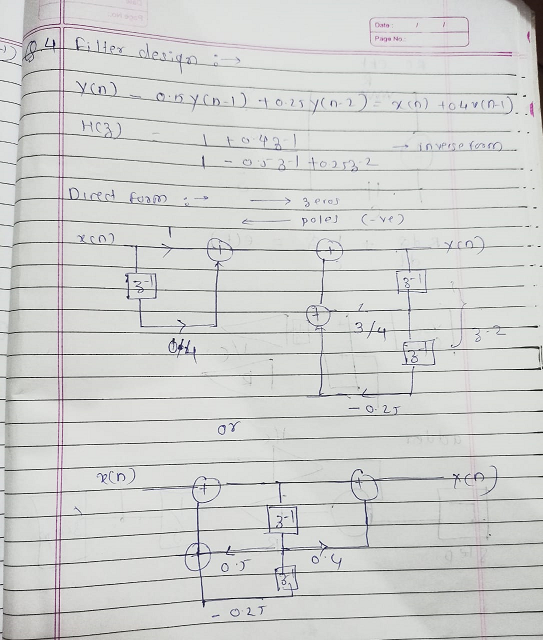 Date : / /
Page No.
Q.4 Filter design :→
Y(n) - 0.5 Y(n-1) + 0.25 Y(n-2) = x(n) + 0.4x(n-1)
H(z) = 1 + 0.4z-1 → inverse form
1 - 0.5z-1 + 0.25z-2
Direct form :→ → zeros
← poles (-ve)
x(n) 1 + + Y(n)
z-1 z-1
+ 3/4 z-2
0.4 z-1
- 0.25
or
x(n) + + Y(n)
z-1
+ 0.5 0.4
z-1
- 0.25